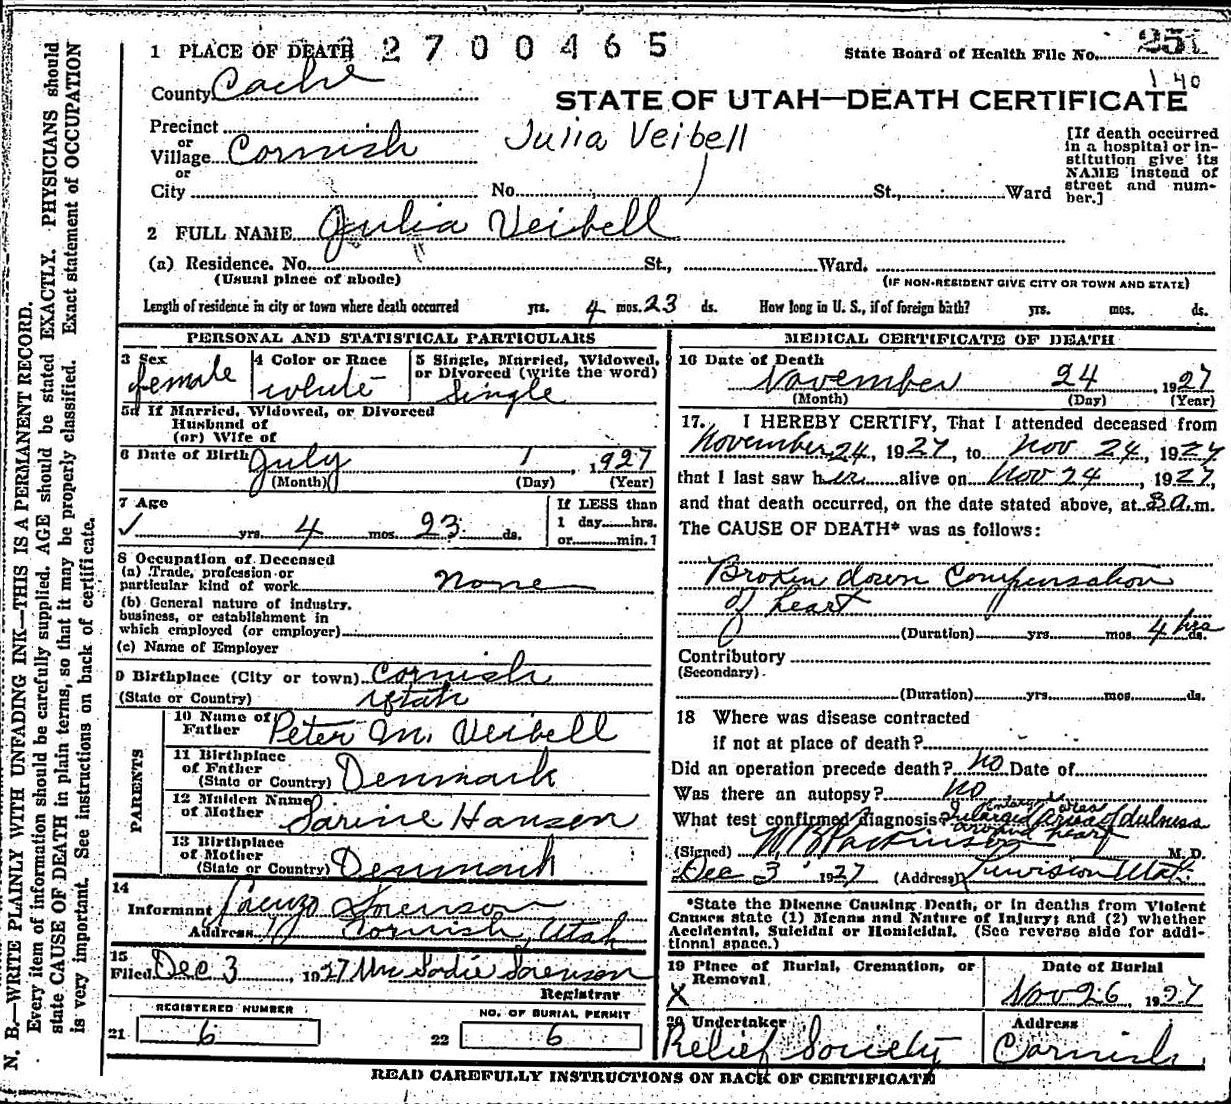 1 PLACE OF DEATH 2700465
State Board of Health File No. 251
1 40
County Cache
STATE OF UTAH—DEATH CERTIFICATE
Precinct
or
Village Cornish
or
Julia Veibell
[If death occurred
in a hospital or in-
stitution give its
NAME instead of
street and num-
ber.]
City No. St., Ward
2 FULL NAME Julia Veibell
(a) Residence. No. St., Ward.
(Usual place of abode) (IF NON-RESIDENT GIVE CITY OR TOWN AND STATE)
Length of residence in city or town where death occurred yrs. 4 mos. 23 ds. How long in U. S., if of foreign birth? yrs. mos. ds.
PERSONAL AND STATISTICAL PARTICULARS
3 Sex
female
4 Color or Race
white
5 Single, Married, Widowed,
or Divorced (write the word)
Single
5a If Married, Widowed, or Divorced
Husband of
(or) Wife of
6 Date of Birth July 1, 1927
(Month) (Day) (Year)
7 Age
✓ yrs. 4 mos. 23 ds.
If LESS than
1 day......hrs.
or......min.?
8 Occupation of Deceased
(a) Trade, profession or
particular kind of work None
(b) General nature of industry,
business, or establishment in
which employed (or employer)
(c) Name of Employer
9 Birthplace (City or town) Cornish
(State or Country) Utah
PARENTS
10 Name of
Father Peter M. Veibell
11 Birthplace
of Father
(State or Country) Denmark
12 Maiden Name
of Mother Sarine Hansen
13 Birthplace
of Mother
(State or Country) Denmark
14
Informant Lorenzo Sorenson
Address Cornish, Utah
15
Filed Dec 3, 1927 Mrs Sadie Sorenson
Registrar
REGISTERED NUMBER
21 6
NO. OF BURIAL PERMIT
22 6
MEDICAL CERTIFICATE OF DEATH
16 Date of Death
November 24, 1927
(Month) (Day) (Year)
17. I HEREBY CERTIFY, That I attended deceased from
November 24, 1927, to Nov 24, 1927
that I last saw her alive on Nov 24, 1927,
and that death occurred, on the date stated above, at 8 a.m.
The CAUSE OF DEATH* was as follows:
Broken down Compensation
of heart
(Duration) yrs. mos. 4 hrs ds.
Contributory
(Secondary)
(Duration) yrs. mos. ds.
18 Where was disease contracted
if not at place of death?
Did an operation precede death? No Date of
Was there an autopsy? No
What test confirmed diagnosis? Enlarged area of dulness
around heart
(Signed) M. D.
Dec 3 1927 (Address) Lewiston Utah
*State the Disease Causing Death, or in deaths from Violent
Causes state (1) Means and Nature of Injury; and (2) whether
Accidental, Suicidal or Homicidal. (See reverse side for addi-
tional space.)
19 Place of Burial, Cremation, or
Removal
X
Date of Burial
Nov 26, 1927
20 Undertaker
Relief Society
Address
Cornish
READ CAREFULLY INSTRUCTIONS ON BACK OF CERTIFICATE
N. B.—WRITE PLAINLY WITH UNFADING INK—THIS IS A PERMANENT RECORD.
Every item of information should be carefully supplied. AGE should be stated EXACTLY. PHYSICIANS should
state CAUSE OF DEATH in plain terms, so that it may be properly classified. Exact statement of OCCUPATION
is very important. See instructions on back of certificate.